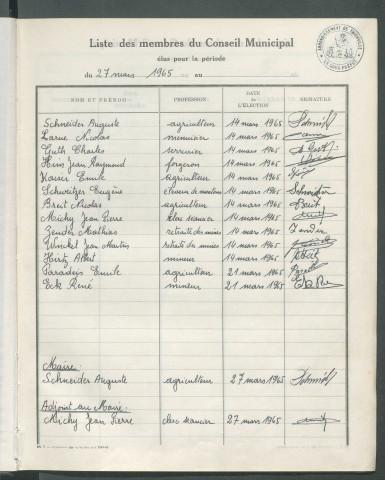 Liste des membres du Conseil Municipal
élus pour la période
du 27 mars 1965 au
NOM ET PRÉNOM PROFESSION DATE de L'ÉLECTION SIGNATURE
Schneider Auguste agriculteur 14 mars 1965
Larue Nicolas menuisier 14 mars 1965
Guth Charles serrurier 14 mars 1965
Hein Jean Raymond forgeron 14 mars 1965
Kaiser Emile agriculteur 14 mars 1965
Schweitzer Eugène éleveur de moutons 14 mars 1965
Breit Nicolas agriculteur 14 mars 1965 Breit
Michy Jean Pierre clerc 14 mars 1965
Zender Mathias retraité des mines 14 mars 1965 Zender
Winkel Jean Martin retraité des mines 14 mars 1965
Hirtz Albert mineur 14 mars 1965
Paradeis Emile agriculteur 21 mars 1965
Eck René mineur 21 mars 1965
Maire:
Schneider Auguste agriculteur 27 mars 1965
Adjoint au Maire:
Michy Jean Pierre clerc 27 mars 1965